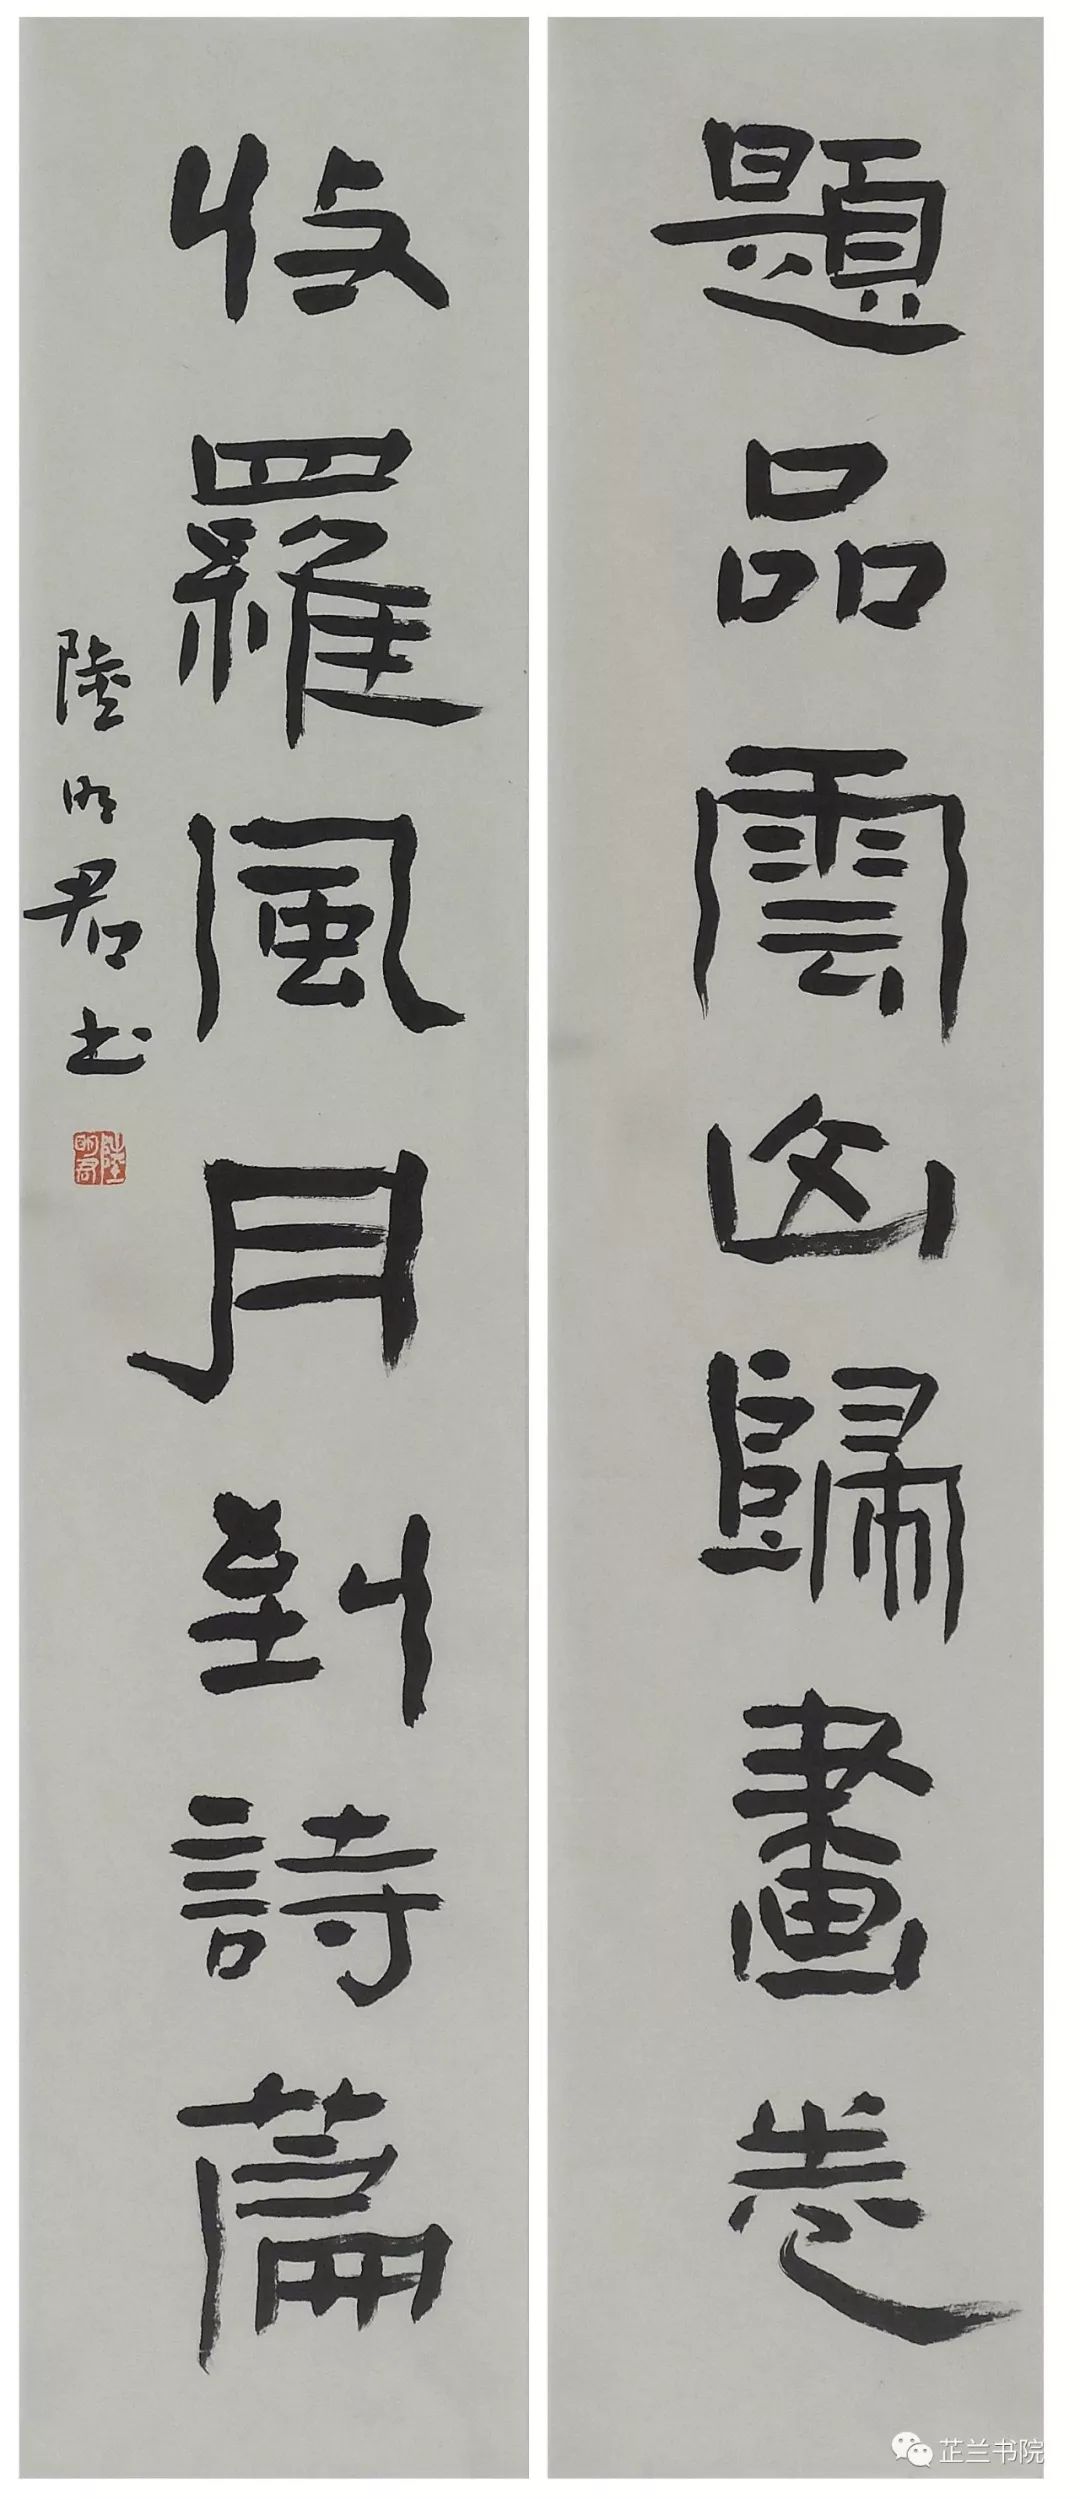 題品雲山歸畫卷
收羅風月到詩篇
陸明君书
陸明君
芷兰书院